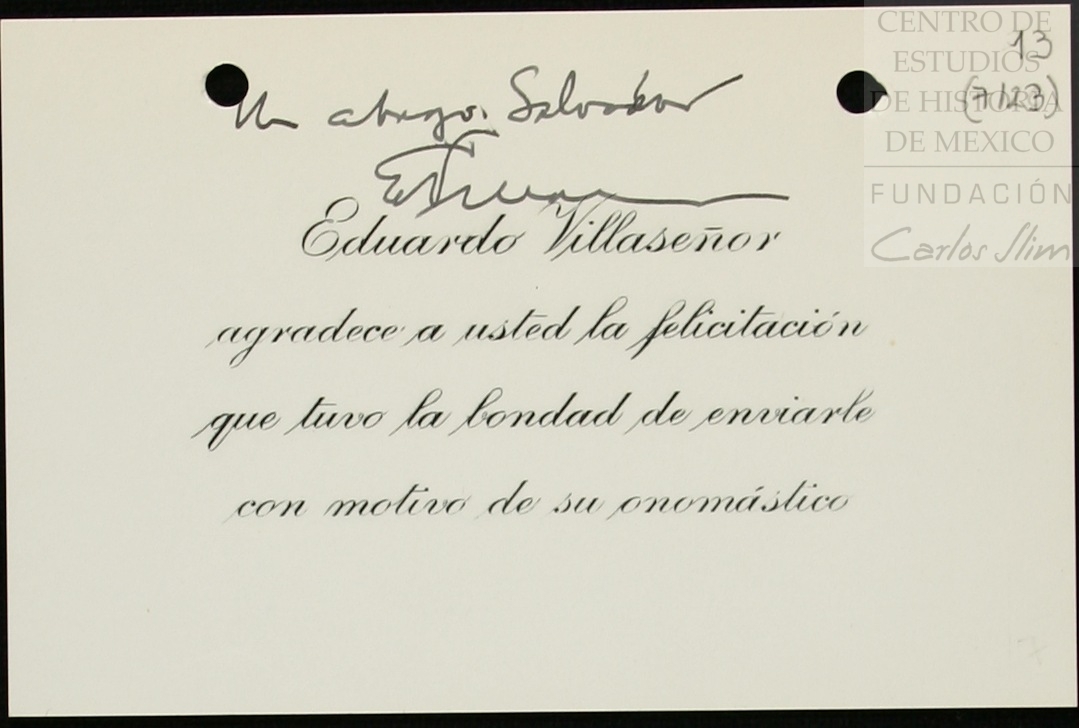 CENTRO DE
ESTUDIOS
DE HISTORIA
DE MEXICO
FUNDACIÓN
Carlos Slim
13
(7/23)
Un abrazo. Salvador
Eduardo Villaseñor
agradece a usted la felicitación
que tuvo la bondad de enviarle
con motivo de su onomástico